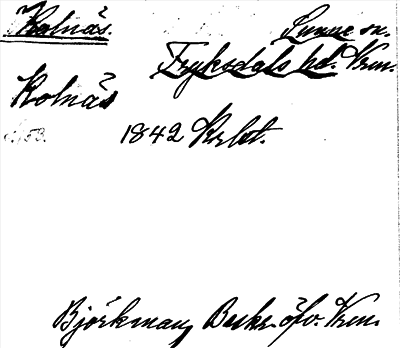 Kolnäs. Sunne sn.
Fryksdals hd. Vrm.
Kolnäs
1842 Krbt.
Björkman, Beskr. öfv. Vrm.